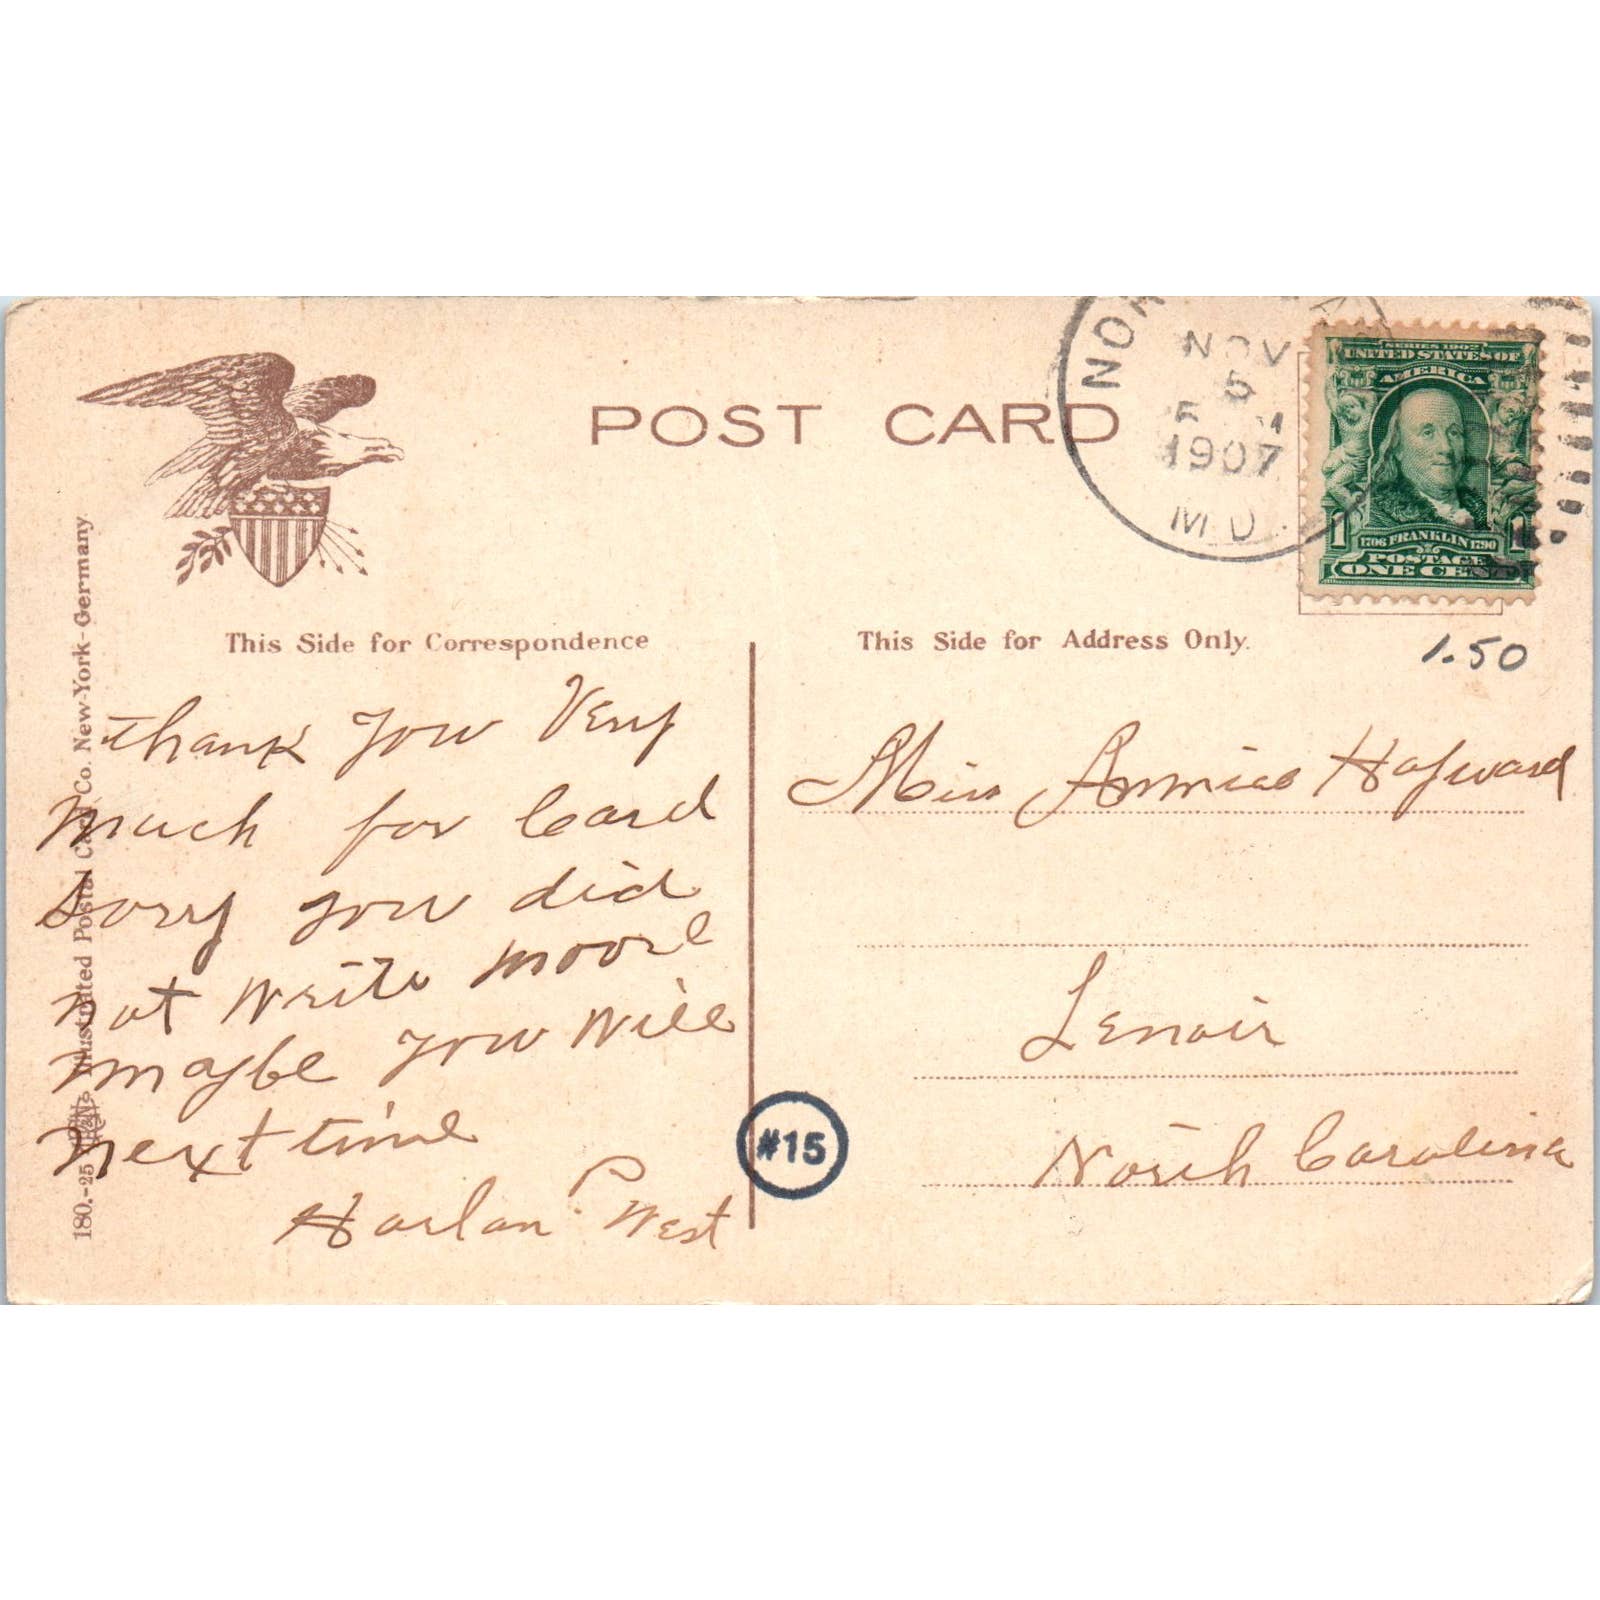 POST CARD
NOV
5
1907
MD.
SERIES 1902
UNITED STATES OF
AMERICA
1 1
1706 FRANKLIN 1790
POSTAGE
ONE CENT
This Side for Correspondence
This Side for Address Only.
1.50
thank you Very
much for Card
Sorry you did
not write moore
maybe you will
next time
Harlan P. West
Miss Annie Hayward
Lenoir
North Carolina
#15
180.-25 Illustrated Postal Card Co. New-York-Germany.